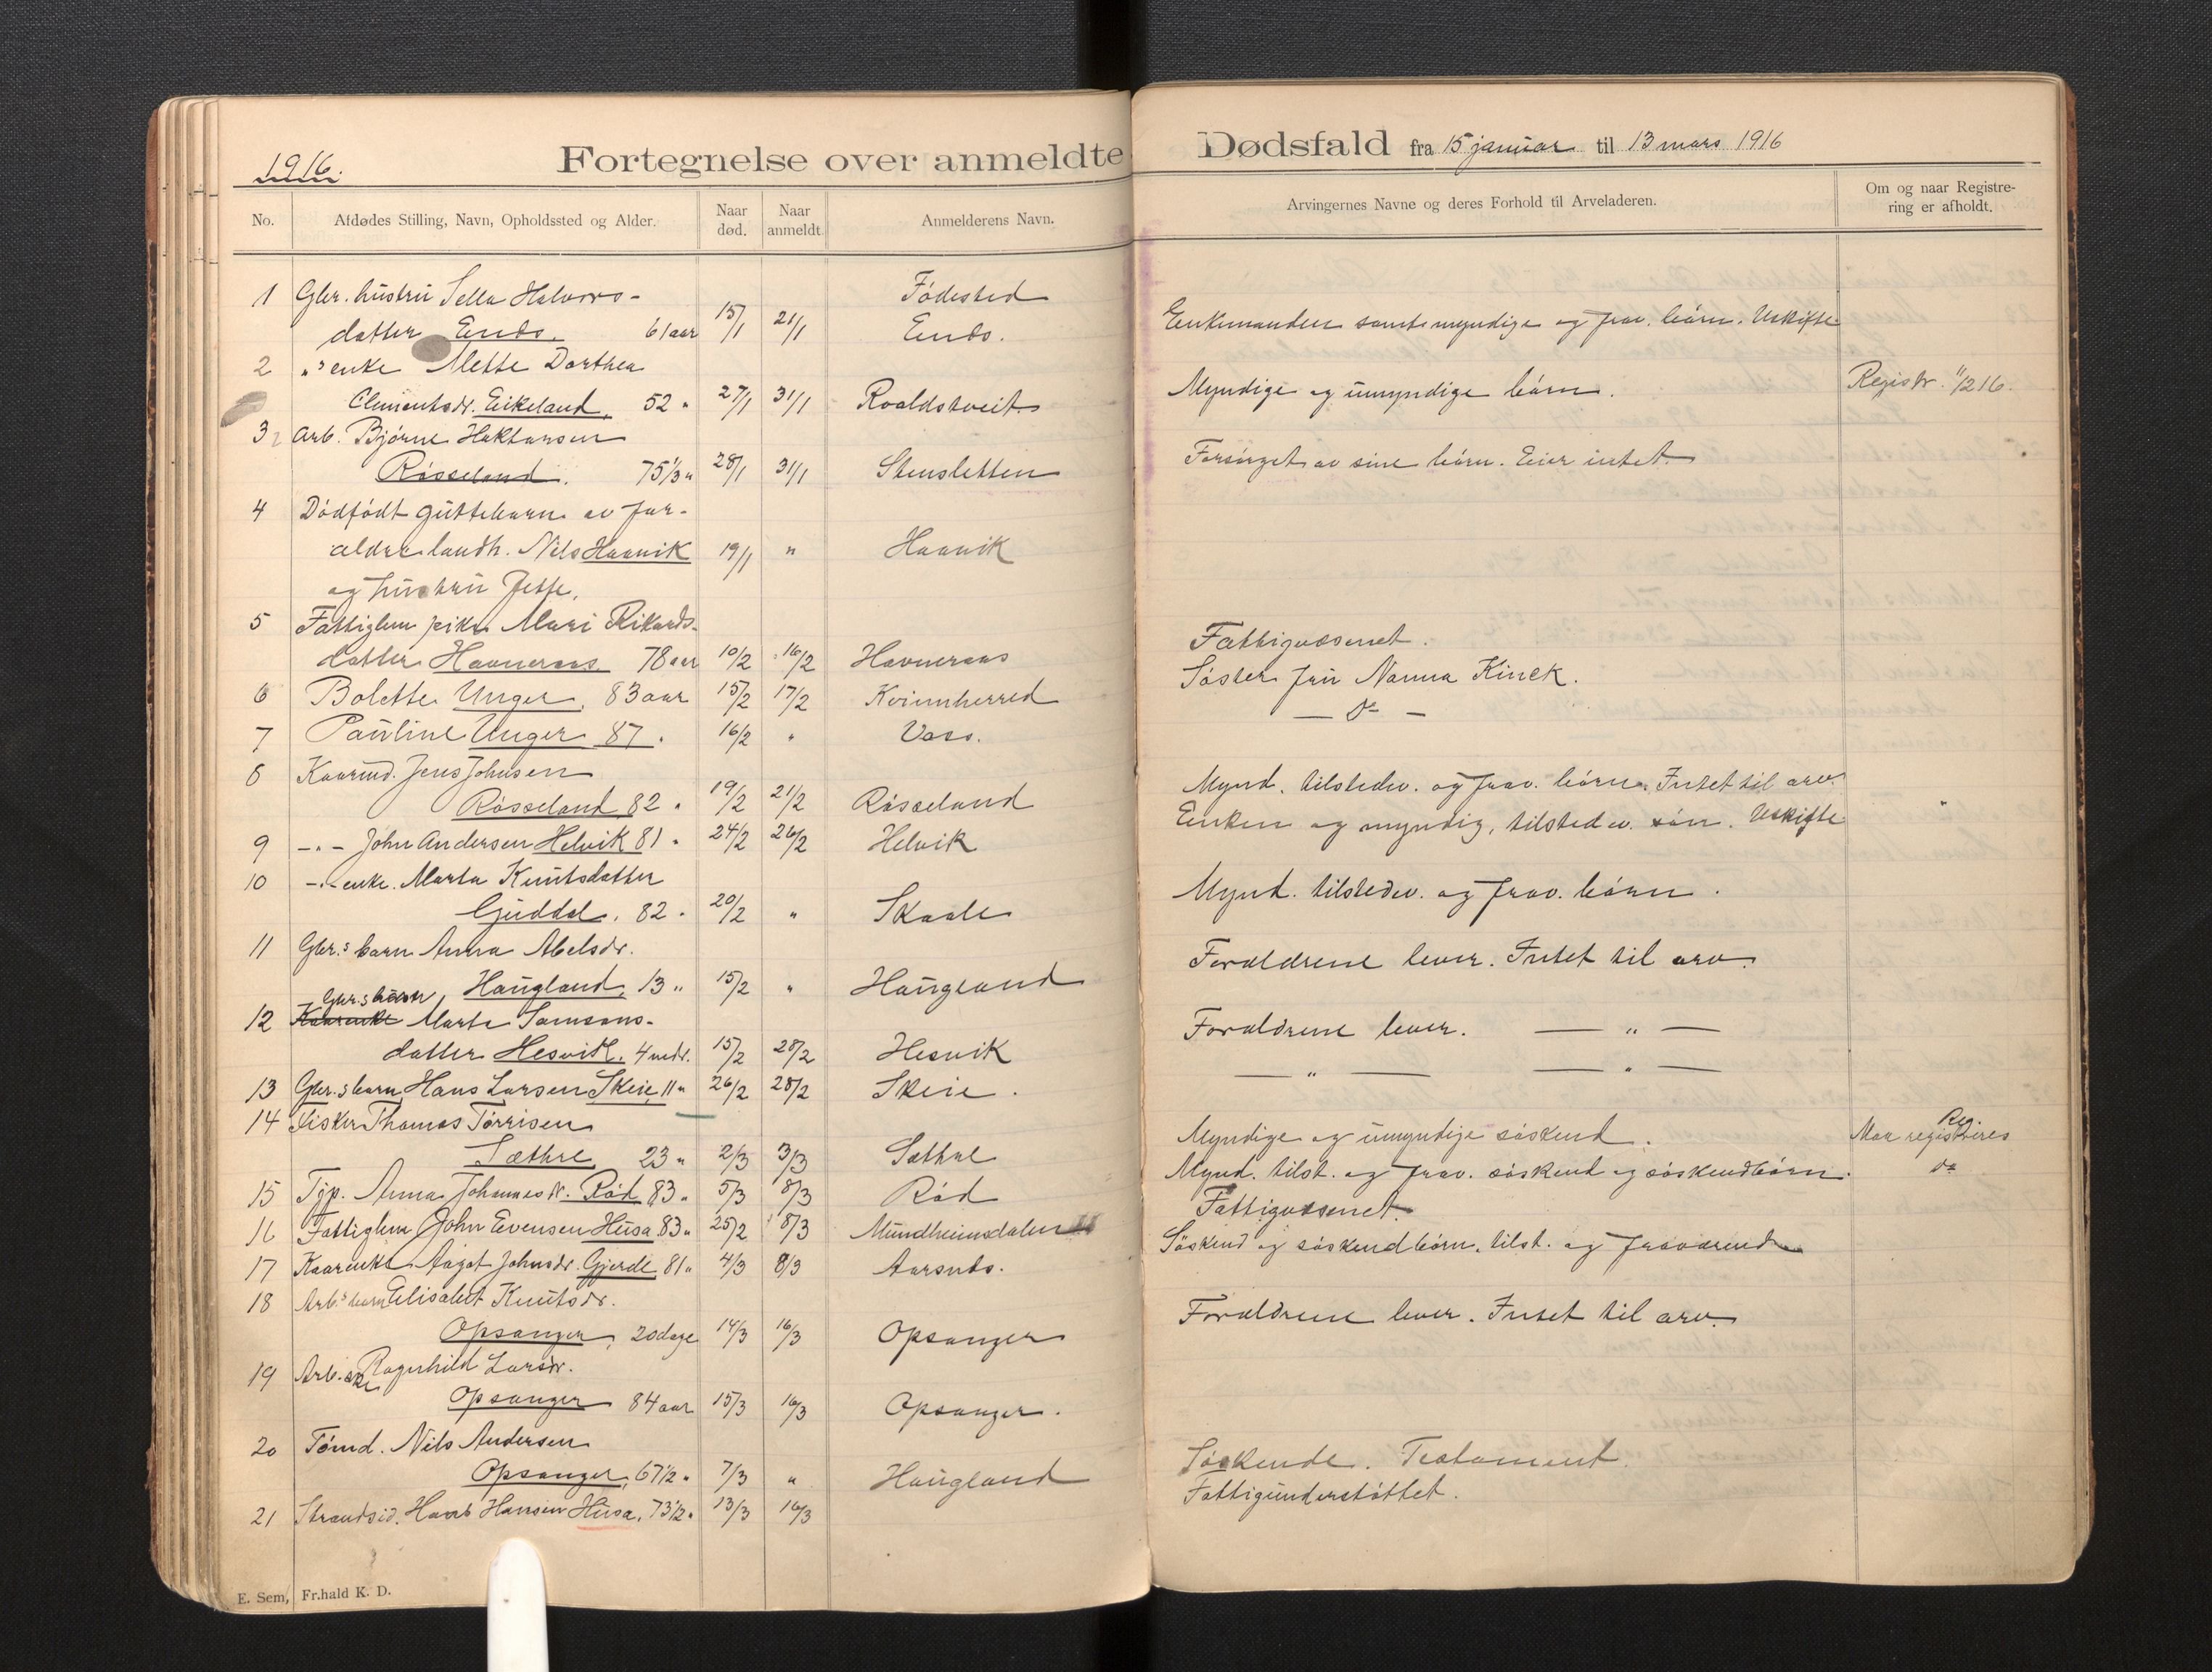 1916.
Fortegnelse over anmeldte Dødsfald fra 15 januar til 13 mars 1916
No. Afdødes Stilling, Navn, Opholdssted og Alder. Naar død. Naar anmeldt. Anmelderens Navn. Arvingernes Navne og deres Forhold til Arveladeren. Om og naar Registrering er afholdt.
1 Gbr. hustru Sella Halvors- Fødested
datter Enes. 61 aar 15/1 21/1 Enes. Enkemanden samt myndige og frav. børn. Uskifte
2 " enke Mette Dorthea
Clementsdr. Eikeland, 52 " 27/1 31/1 Roaldstveit Myndige og umyndige børn. Registr. 11/2 16.
3 Arb. Bjørne Haktorsen
Røsseland. 75 1/3 " 28/1 31/1 Stensletten Forsørget av sine børn. Eier intet.
4 Dødfødt guttebarn av for-
ældre landh. Nils Haavik 19/1 " Haavik
og hustru Jette.
5 Fattiglem pike Mari Rikards-
datter Havneraas 78 aar 10/2 16/2 Havneraas Fattigvæsenet.
6 Bolette Unger, 83 aar 15/2 17/2 Kvinnherred Søster fru Nanna Kinck.
7 Pauline Unger 87 " 16/2 " Voss. — do —
8 Kaarmd. Jens Johnsen
Røsseland 82 " 19/2 21/2 Røsseland Mynd. tilstedev. og frav. børn. Intet til arv.
9 — " — John Andersen Helvik 81 " 24/2 26/2 Helvik Enken og myndig, tilstedev. søn. Uskifte
10 — " — enke. Marta Knutsdatter
Guddal. 82 " 20/2 " Skaale Mynd. tilstedev. og frav. børn.
11 Gbr.s barn Anna Abelsdr.
Haugland, 13 " 15/2 " Haugland Forældrene lever. Intet til arv.
Gbr.s barn
12 Kaarenke Marta Samsons-
datter Hesvik. 4 mdr. 15/2 28/2 Hesvik Forældrene lever. — " —
13 Gbr.s barn Hans Larsen Skeie 11 " 26/2 28/2 Skeie. — " — — " —
14 Fisker Thomas Tørrisen
Sæthre 23 " 2/3 3/3 Sæthre Myndige og umyndige søskend. Maa registreres Reg.
15 Tjp. Anna Johannesdr. Rød 83 " 5/3 8/3 Rød Mynd. tilst. og frav. søskend og søskendbørn. do
16 Fattiglem John Evensen Husa 83 " 25/2 8/3 Mundheimsdalen Fattigvæsenet.
17 Kaarenke Aagot Johnsdr. Gjerde 81 " 4/3 8/3 Aarsnes. Søskend og søskendbørn, tilst. og fraværende
18 Arb.s barn Elisabet Knutsdr.
Opsanger, 20 dage 14/3 16/3 Opsanger Forældrene lever. Intet til arv.
19 Arb. Ragnhild Larsdr.
Opsanger 84 aar 15/3 16/3 Opsanger.
20 Tømd. Nils Andersen
Opsanger, 67 1/2 " 7/3 " Haugland Søskende. Testament.
21 Strandsid. Hans Hansen Husa, 73 1/2 " 13/3 16/3 Fattigunderstøttet.
E. Sem, Fr.hald K. D.